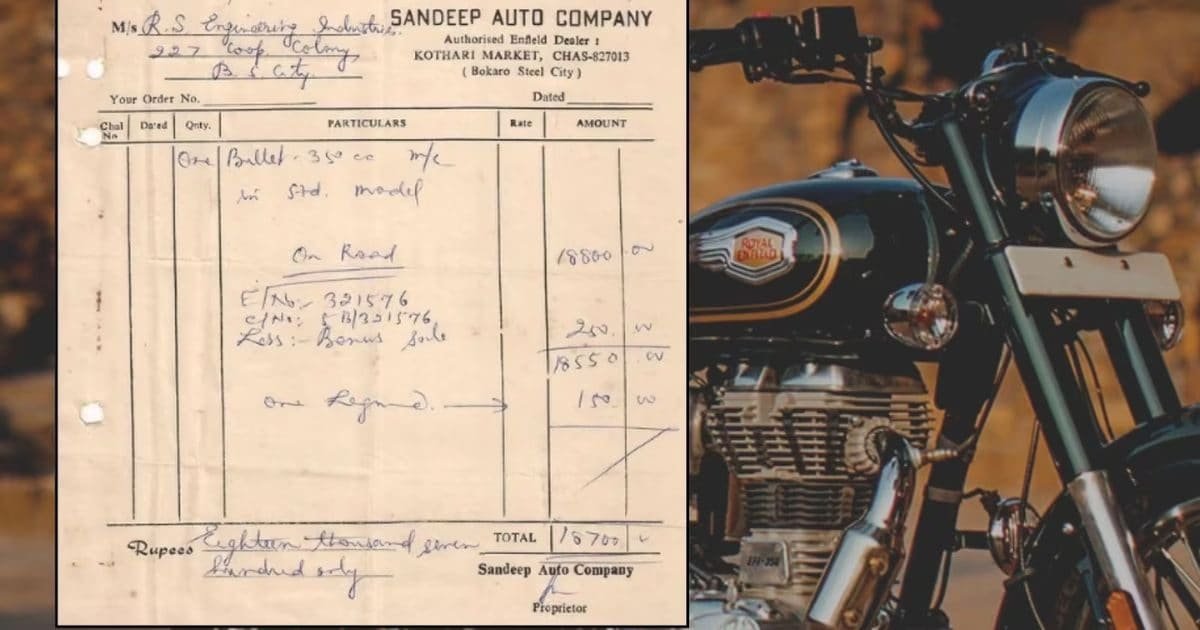 SANDEEP AUTO COMPANY
Authorised Enfield Dealer :
KOTHARI MARKET, CHAS-827013
( Bokaro Steel City )
M/s R.S. Engineering Industries.
227 Coop. Colony
B S City
Your Order No.
Dated
Chal No Dated Qnty. PARTICULARS Rate AMOUNT
One Bullet - 350 cc m/c
in Std. model
On Road 18800.00
E/No:- 321576
C/No: 5B/321576
Less :- Bonus 250.00
18550.00
one 150 00
Rupees Eighteen thousand seven TOTAL 18700
hundred only
Sandeep Auto Company
Proprietor
ROYAL
ENFIELD